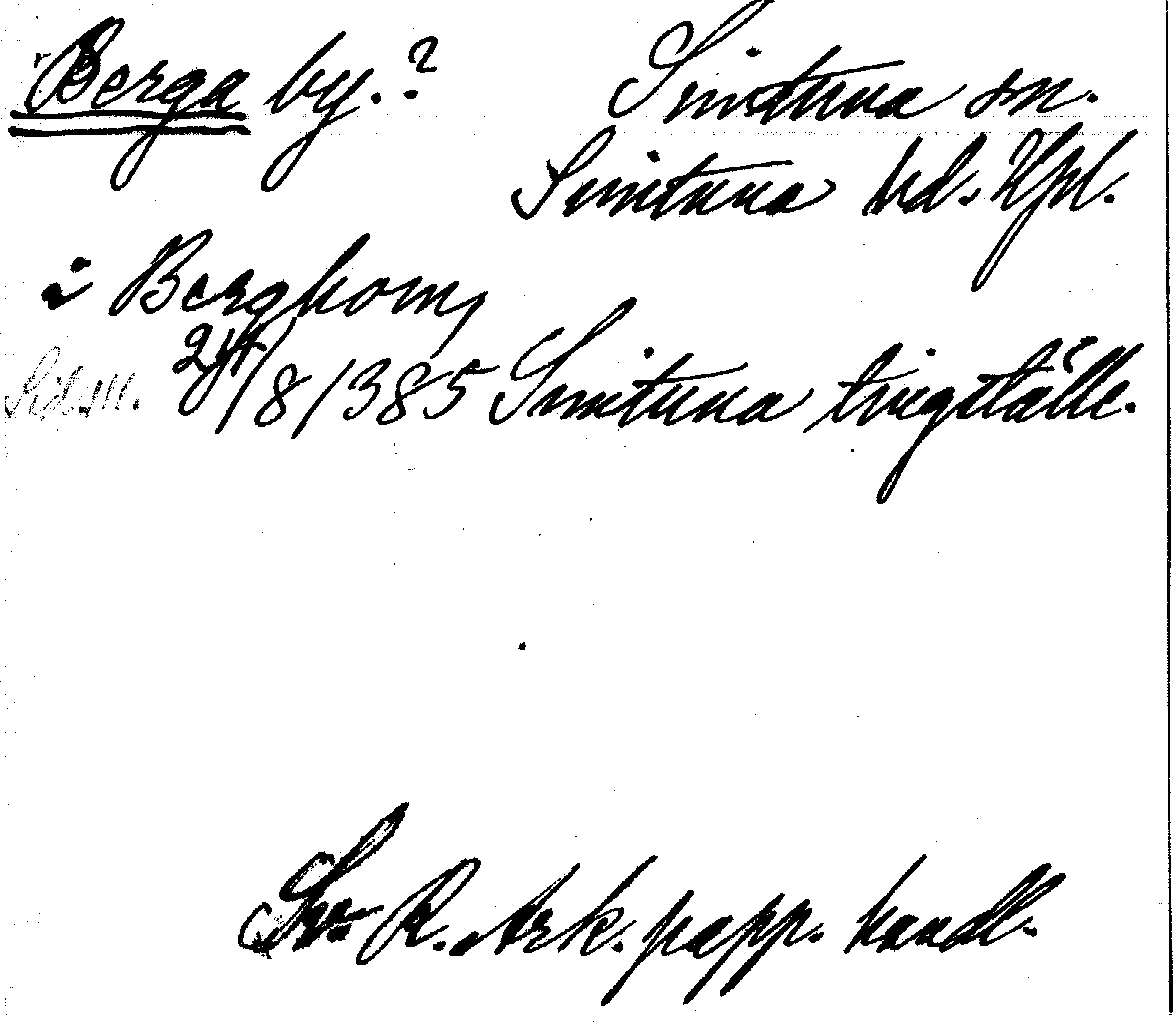 Berga by.? Simtuna sn.
Simtuna hd. Upl.
i Berghom,
24/8 1385 Simtuna tingställe.
Sv. R. Ark. papp. handl.